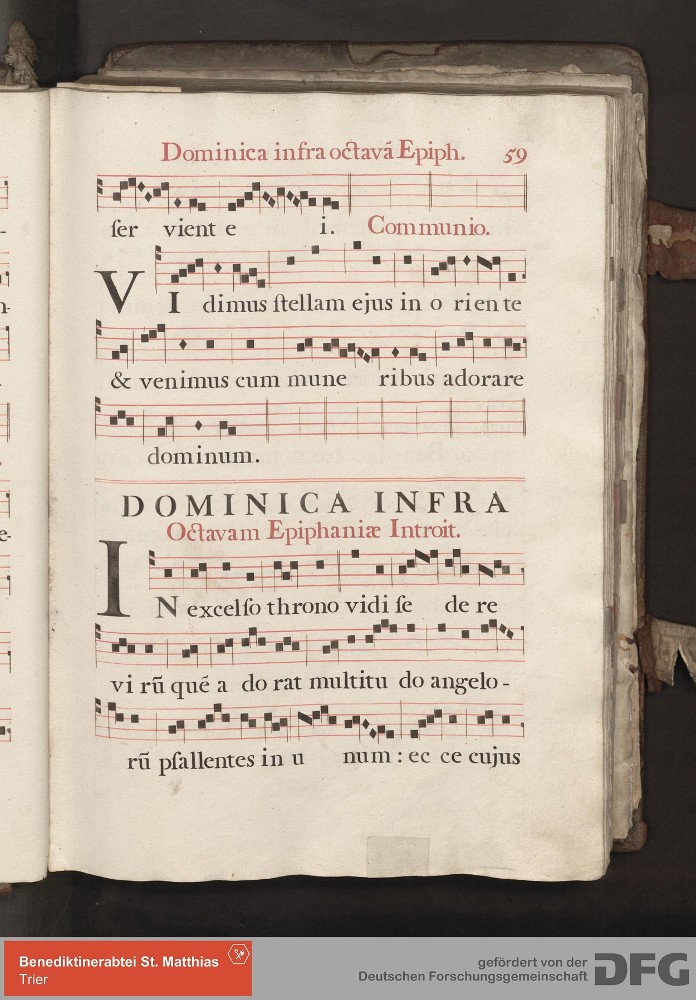 Dominica infra octavã Epiph. 59
ſer vient e i. Communio.
VI dimus ſtellam ejus in o rien te
& venimus cum mune ribus adorare
dominum.
DOMINICA INFRA
Octavam Epiphaniæ Introit.
IN excelſo throno vidi ſe de re
vi rũ qué a do rat multitu do angelo-
rũ pſallentes in u num : ec ce cujus
Benediktinerabtei St. Matthias
Trier
gefördert von der
Deutschen Forschungsgemeinschaft DFG